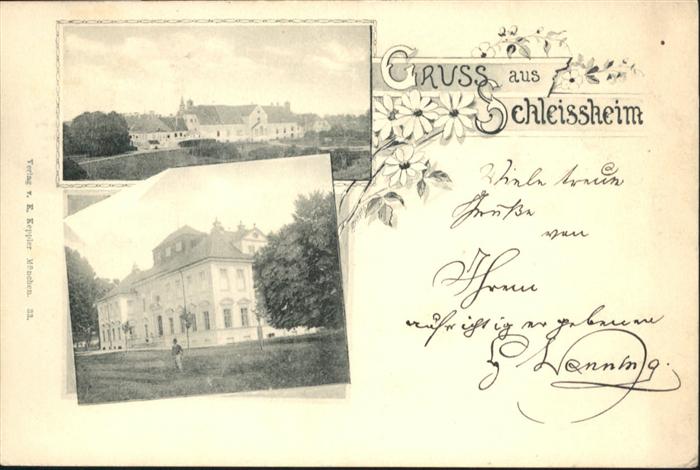 GRUSS aus
Schleissheim
Viele treue
Grüße
von
Ihrem
aufrichtig ergebenen
Wenning.
Verlag v. E. Keppler München. 33.